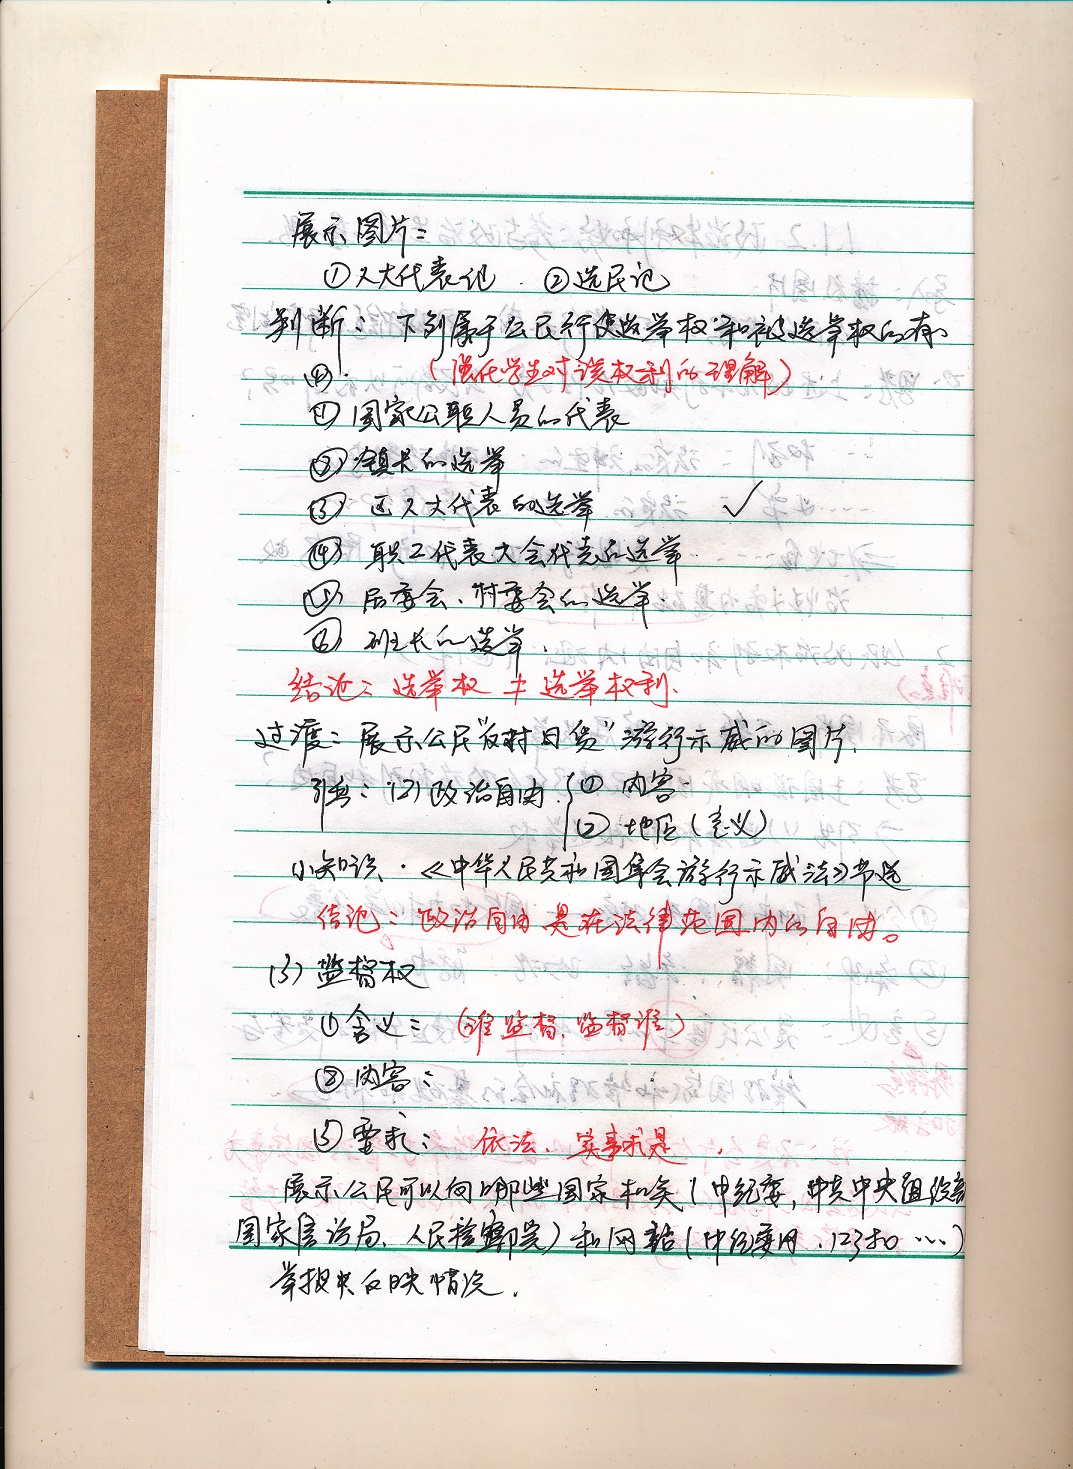 展示图片:
①人大代表证 ②选民证
判断: 下列属于公民行使选举权和被选举权的有:
④. (强化学生对该权利的理解)
① 国家公职人员的代表
② 镇长的选举
③ 区人大代表的选举 ✓
④ 职工代表大会代表的选举.
⑤ 居委会、村委会的选举
⑥ 班长的选举.
结论: 选举权 ≠ 选举权利.
过渡: 展示公民"反对日货"游行示威的图片.
(2) 政治自由. ① 内容
② 地位(意义)
小知识.《中华人民共和国集会游行示威法》节选
结论: 政治自由是在法律范围内的自由。
(3) 监督权
① 含义: (谁监督、监督谁)
② 内容:
③ 要求: 依法、实事求是.
展示公民可以向哪些国家机关(中纪委, 中共中央组织部
国家信访局、人民检察院)和网站(中纪委网.12380 …)
举报或反映情况.